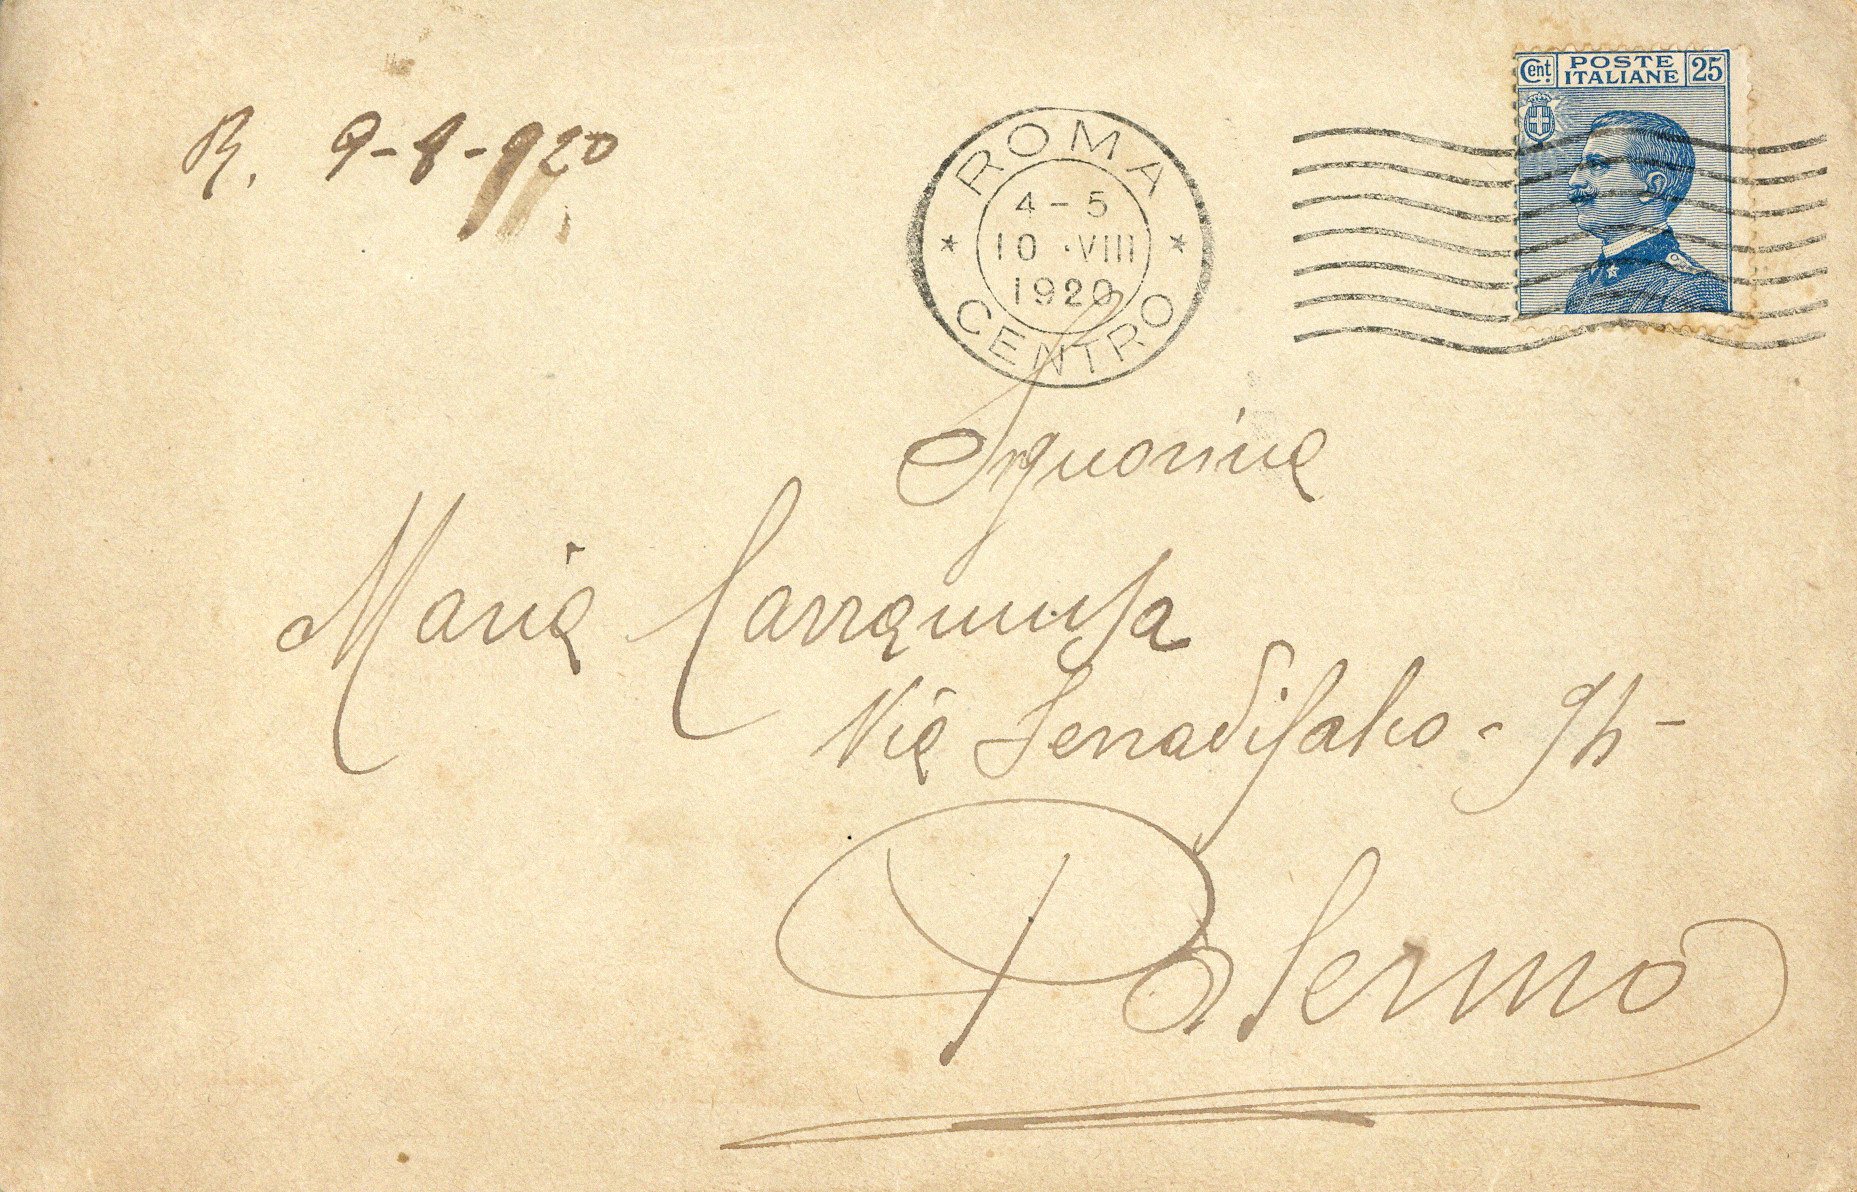 Cent. POSTE ITALIANE 25
R. 9-8-920
ROMA
4-5
10·VIII
1920
CENTRO
Signorina
Maria
Via Serradifalco -
Palermo